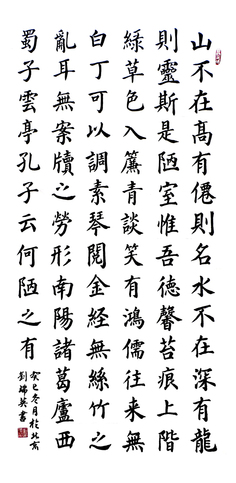 山不在髙有僊則名水不在深有龍
則靈斯是陋室惟吾德馨苔痕上階
綠草色入簾青談笑有鴻儒往來無
白丁可以調素琴閱金經無絲竹之
亂耳無案牘之勞形南陽諸葛廬西
蜀子雲亭孔子云何陋之有
癸巳冬月於北京
劉瑞英書